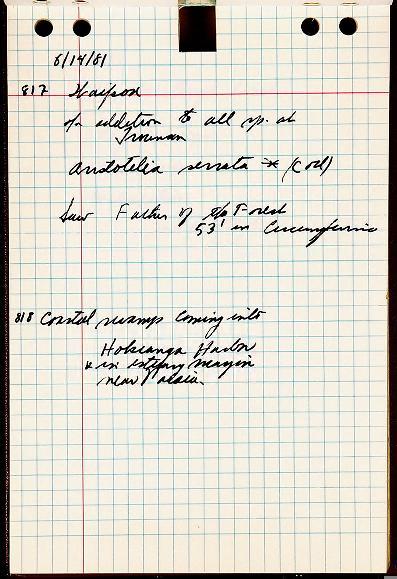 8/14/81
817 Waipoa
in addition to all sp. at
Trounson
Aristotelia serrata * (Coll)
Saw Father of the Forest
53' in Circumference
818 Coastal swamps coming into
Hokianga Harbor
& in estuary margin
near